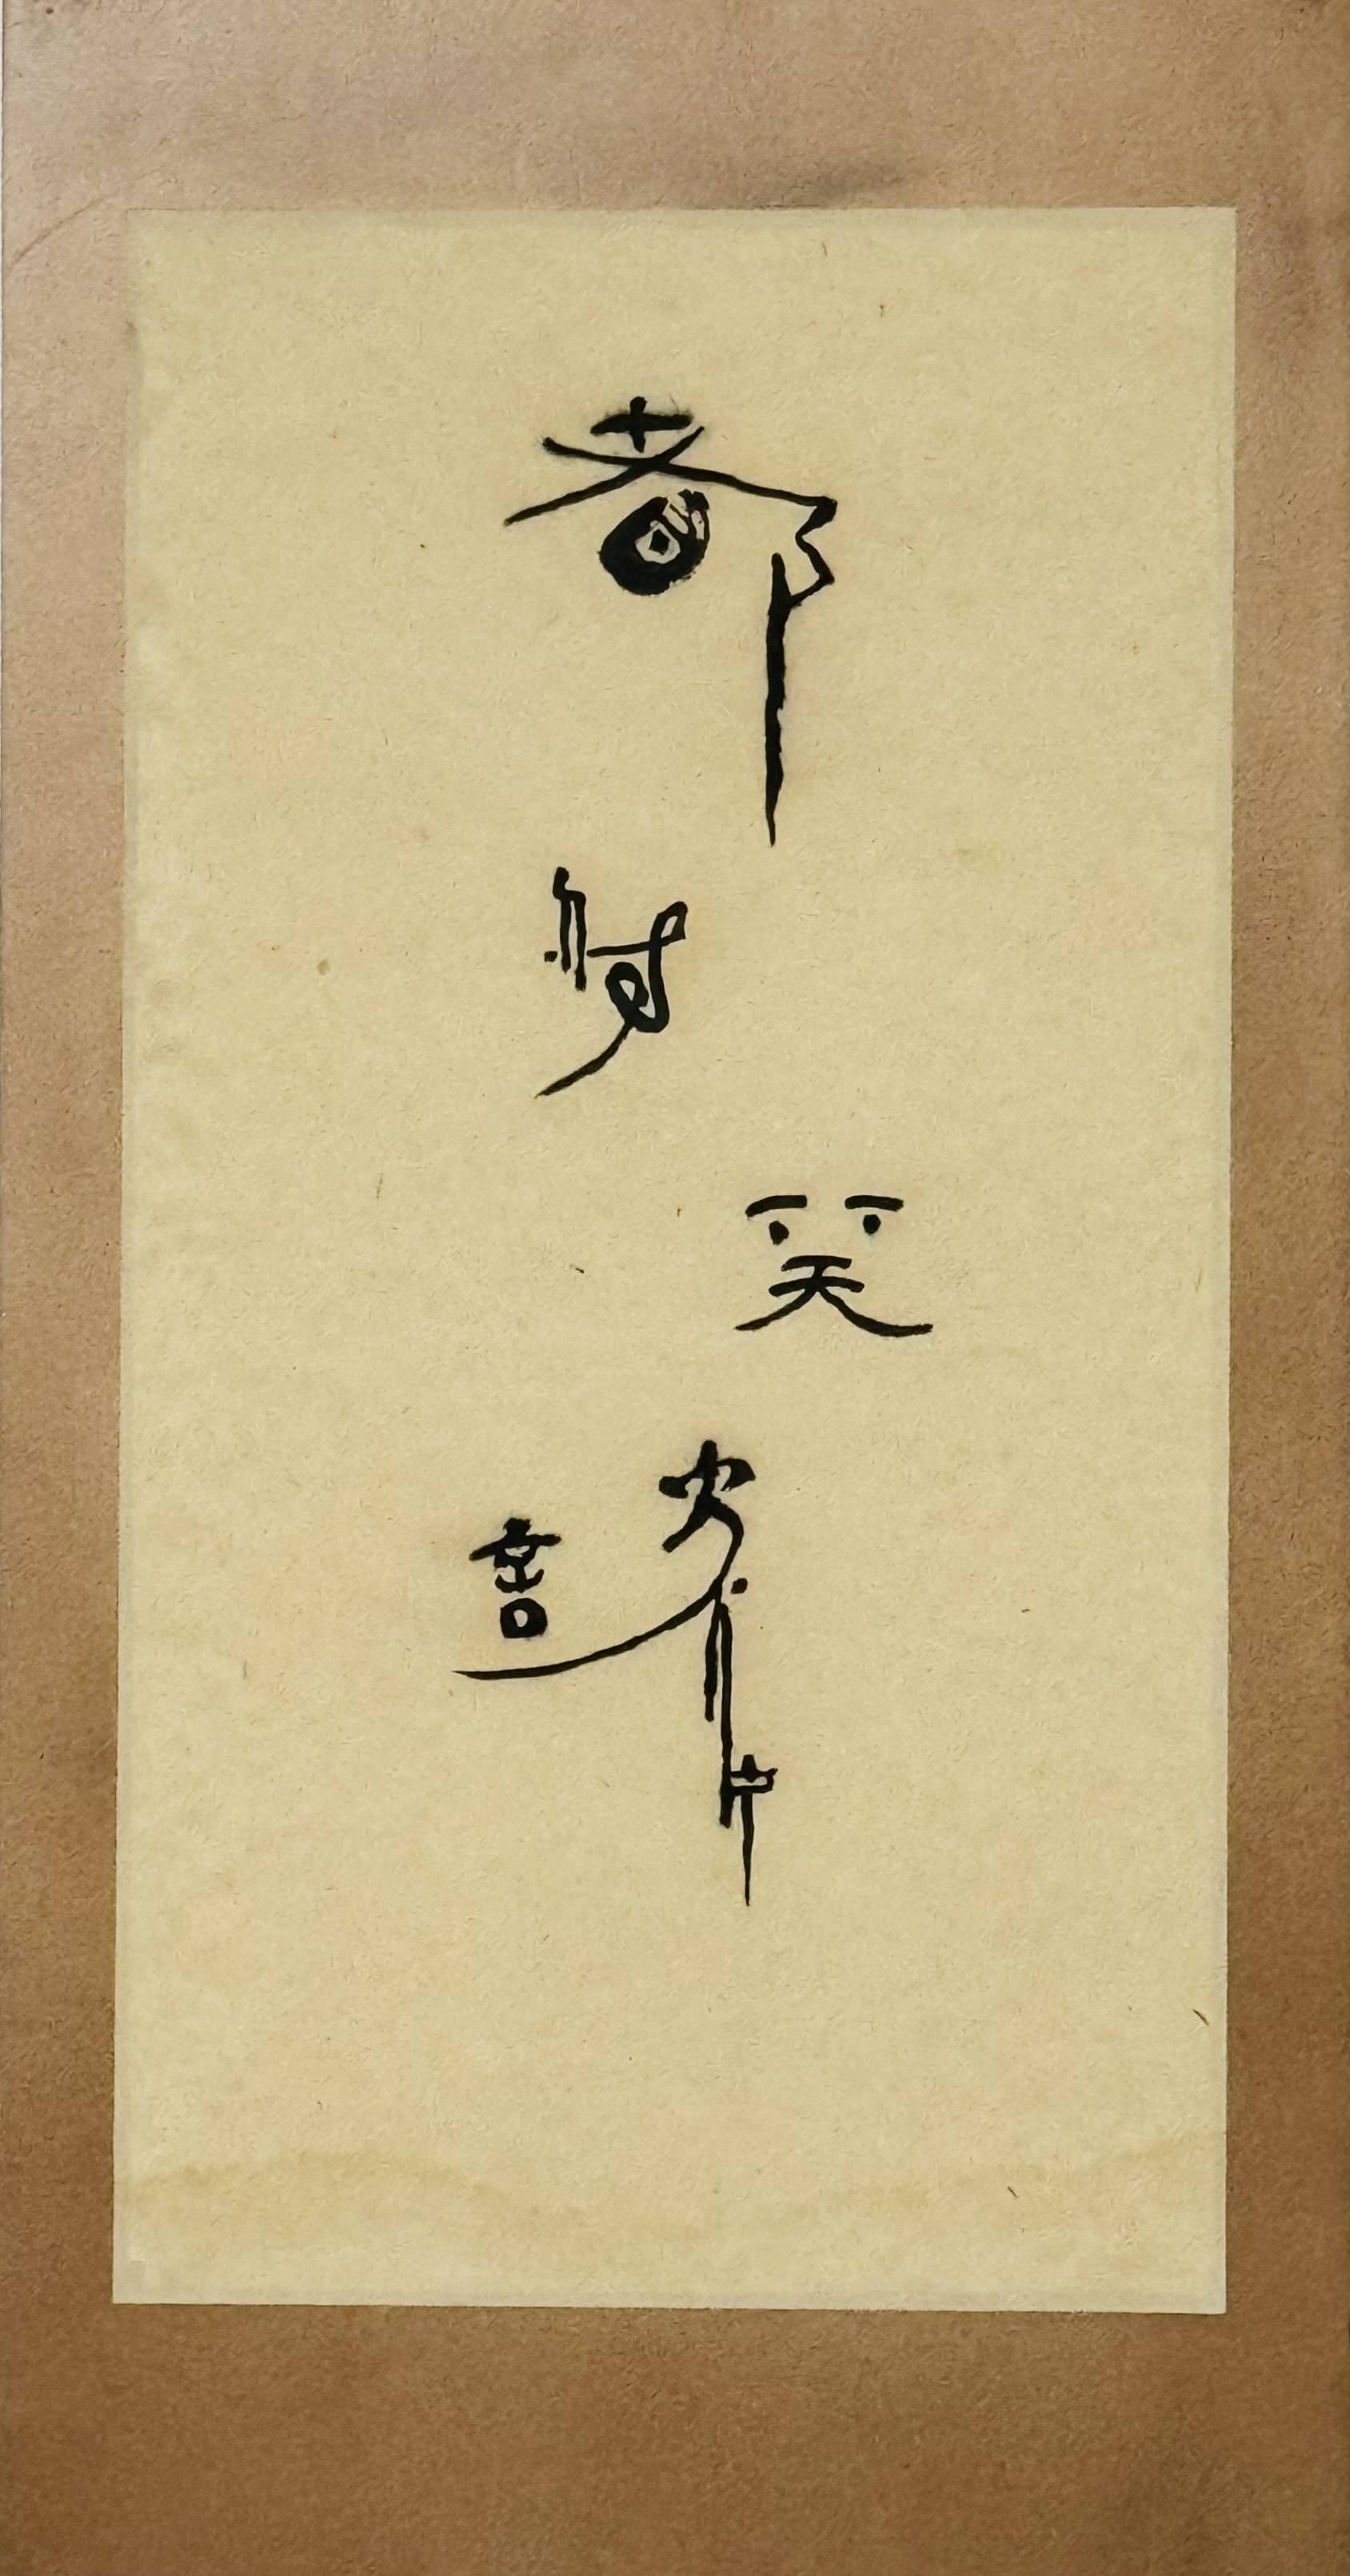 都付笑談中